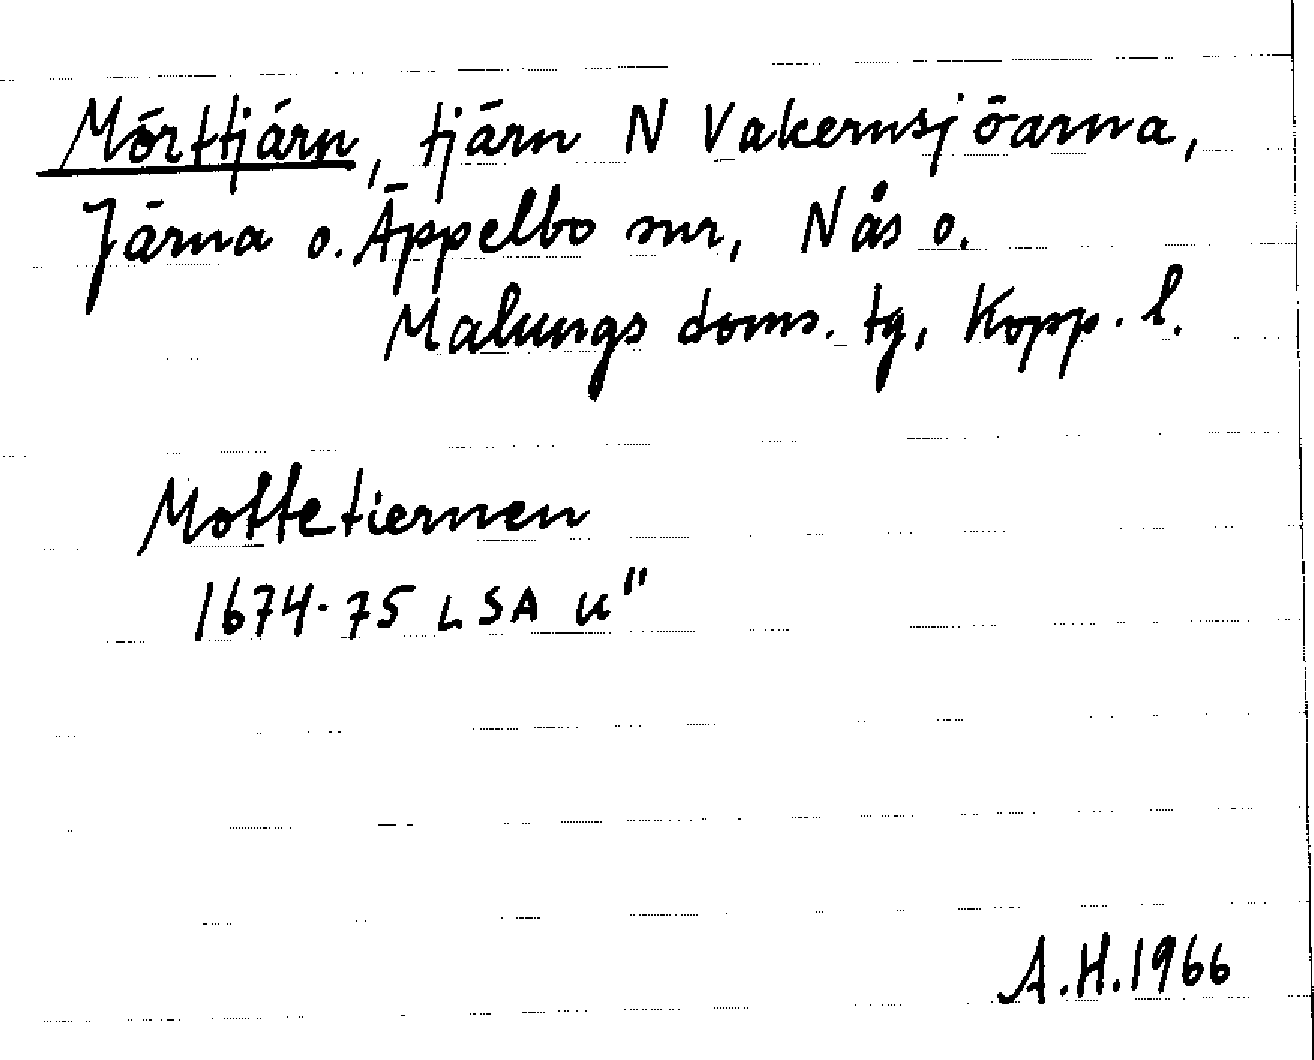 Mörttjärn, tjärn N Vakernsjöarna,
Järna o. Äppelbo snr, Nås o.
Malungs doms. tg, Kopp. l.
Mottetiernen
1674-75 LSA u"
A.H.1966